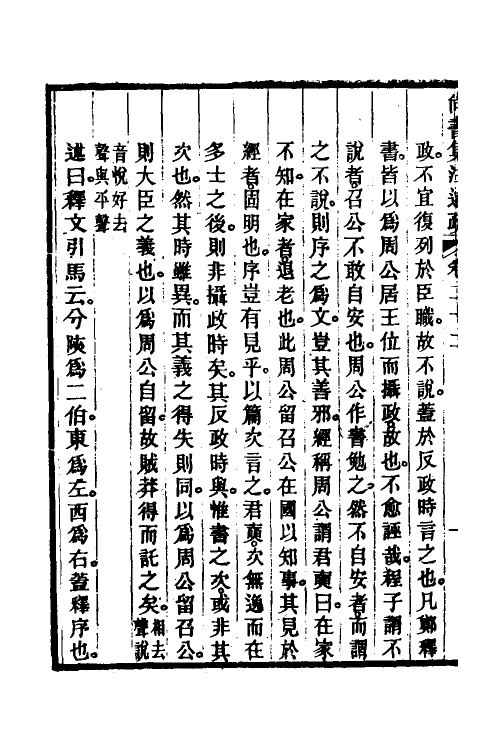 尚書集注述疏 卷二十二
政不宜復列於臣職故不說。蓋於反政時言之也。凡鄭釋
書。皆以爲周公居王位而攝政故也。不愈誣哉。程子謂不
說者。召公不敢自安也。周公作書勉之。然不自安者。而謂
之不說。則序之爲文。豈其善邪。經稱周公謂君奭曰。在家
不知。在家者。退老也。此周公留召公在國以知事。其見於
經者。固明也。序豈有見乎。以篇次言之。君奭。次無逸而在
多士之後。則非攝政時矣。其反政時與。惟書之次。或非其
次也。然其時雖異。而其義之得失則同。以爲周公留召公。
則大臣之義也。以爲周公自留。故賊莽得而託之矣。相去聲說
音悅好去聲與平聲
述曰。釋文引馬云。分陝爲二伯。東爲左。西爲右。蓋釋序也。